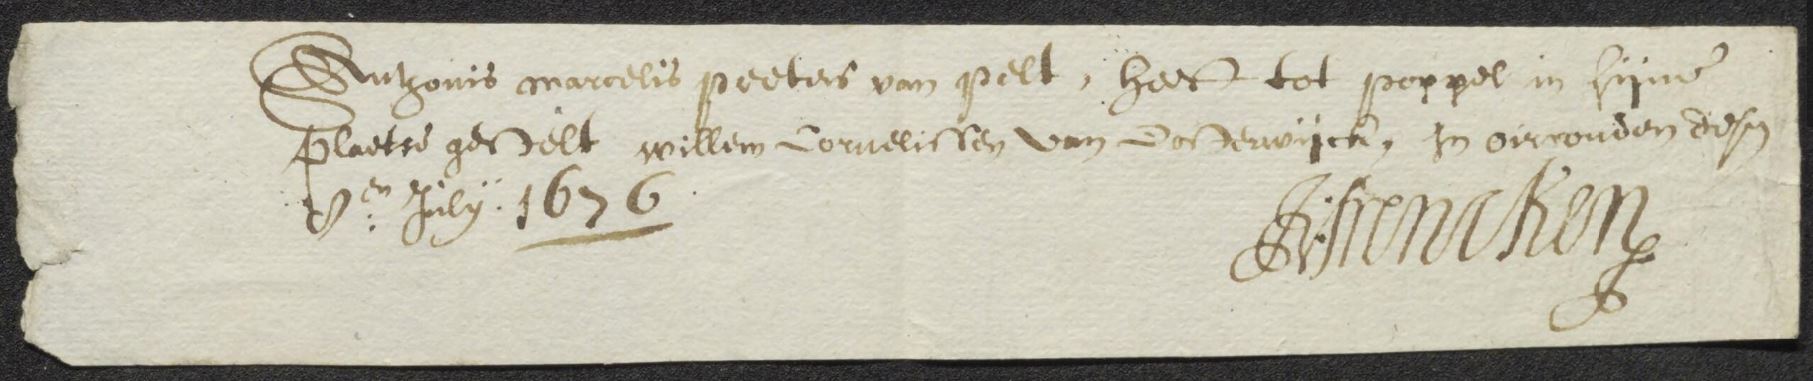 Anthonis marcelis peeters van pelt, heeft tot poppel in sijne
plaetse gestelt willem Cornelissen van Oosterwijck, In oirconden desen
9en July 1676
Vrencken